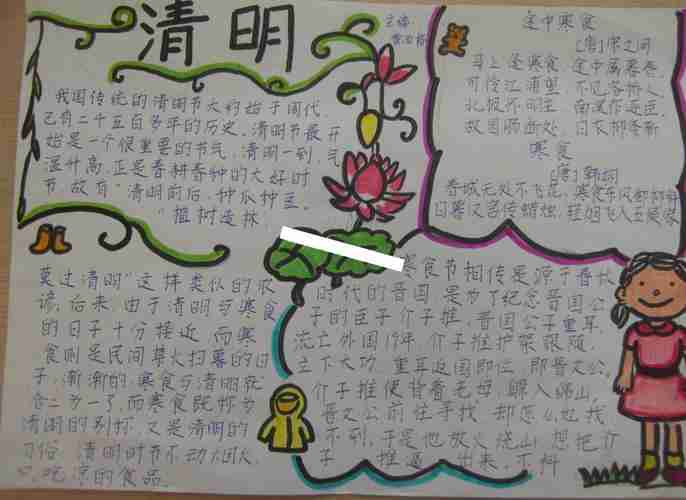 清明
主编
我国传统的清明节大约始于周代,
已有二千五百多年的历史。清明节最开
始是一个很重要的节气,清明一到,气
温升高,正是春耕春种的大好时
节,故有"清明前后,种瓜种豆。
"植树造林,
莫过清明"这样类似的农
谚。后来,由于清明与寒食
的日子十分接近,而寒
食则是民间禁火扫墓的日
子,渐渐的,寒食与清明就
合二为一了,而寒食既称为
清明的别称,又是清明的
习俗,清明时节不动火
只吃凉的食品。
途中寒食
[唐]宋之问
马上逢寒食,途中属暮春。
可怜江浦望,不见洛桥人。
北极怀明主,南溟作逐臣。
故园肠断处,日夜柳条新
寒食
[唐]韩翃
春城无处不飞花,寒食东风御柳斜
日暮汉宫传蜡烛,轻烟飞入五侯家
寒食节相传是源于春秋
时代的晋国是为了纪念晋国公
子的臣子介子推,晋国公子重耳,
流亡外国19年,介子推护驾跟随,
立下大功,重耳返国即位,即晋文公,
介子推便背着老母,躲入绵山,
晋文公前往寻找,却怎么也找
不到,于是他放火烧山,想把介
子推逼出来,不料